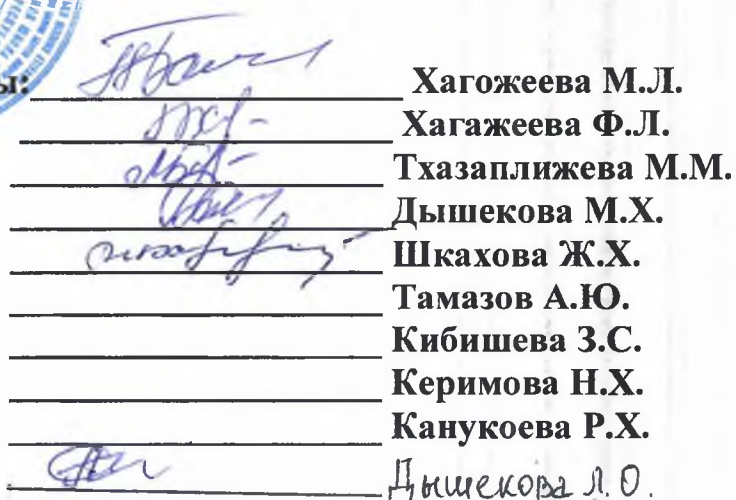 ы: Хагожеева М.Л.
Хагажеева Ф.Л.
Тхазаплижева М.М.
Дышекова М.Х.
Шкахова Ж.Х.
Тамазов А.Ю.
Кибишева З.С.
Керимова Н.Х.
Канукоева Р.Х.
Дышекова Л.О.